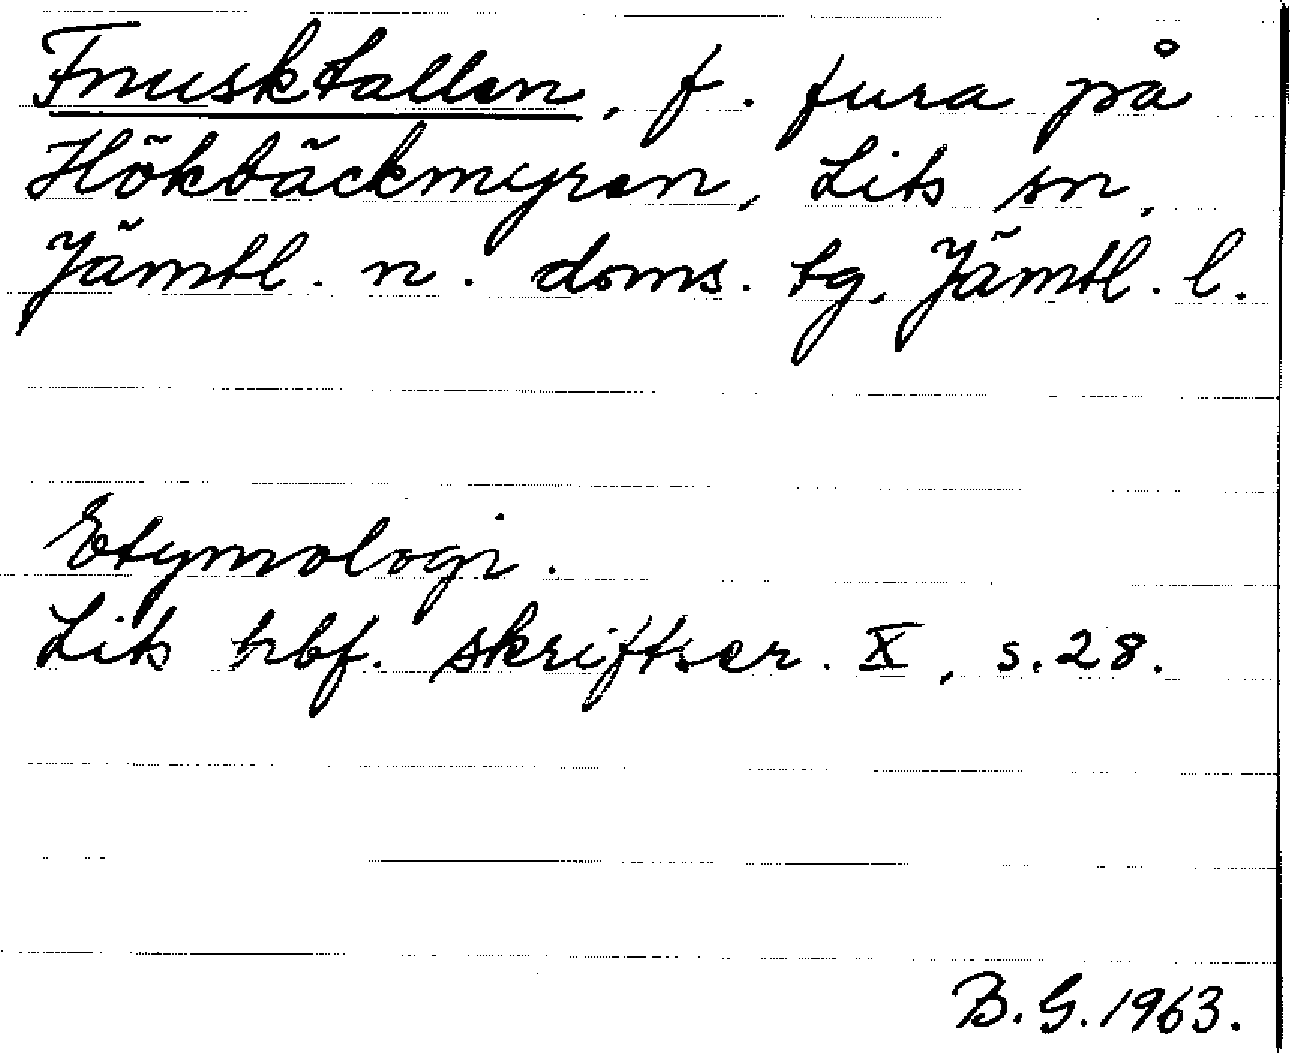 Fnusktallen, f. fura på
Hökbäckmyren, Lits sn,
Jämtl. n. doms. tg, Jämtl. l.
Etymologi.
Lits hbf. skriftser. X, s. 28.
B. G. 1963.